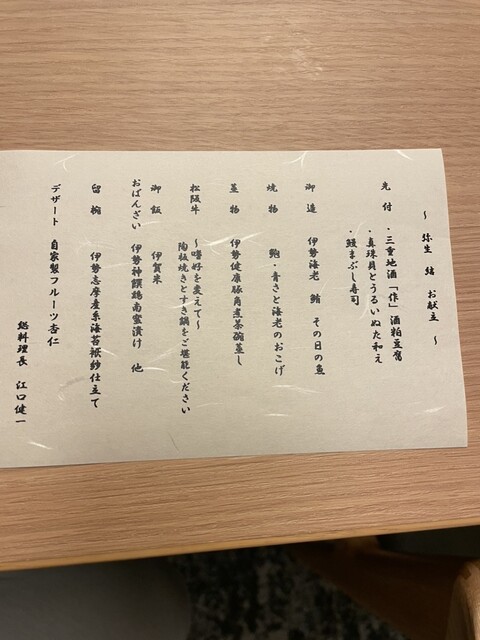 ～ 弥生 結 お献立 ～
先付 ・三重地酒「作」酒粕豆腐
・真珠貝とうるいぬた和え
・鰻まぶし寿司
御造 伊勢海老 鮪 その日の魚
焼物 鮑・青さと海老のおこげ
蒸物 伊勢健康豚角煮茶碗蒸し
松阪牛 ～嗜好を変えて～
陶板焼きとすき鍋をご堪能ください
御飯 伊賀米
おばんざい 伊勢神饌鶏南蛮漬け 他
留椀 伊勢志摩産糸海苔袱紗仕立て
デザート 自家製フルーツ杏仁
総料理長 江口健一